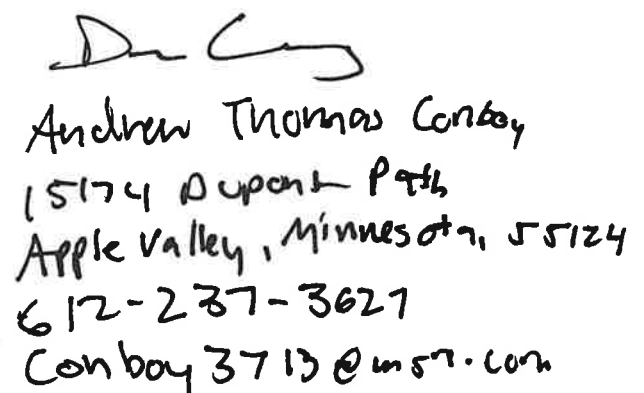 Andrew Thomas Conboy
15174 Dupont Path
Apple Valley, Minnesota, 55124
612-237-3627
Conboy3713@msn.com